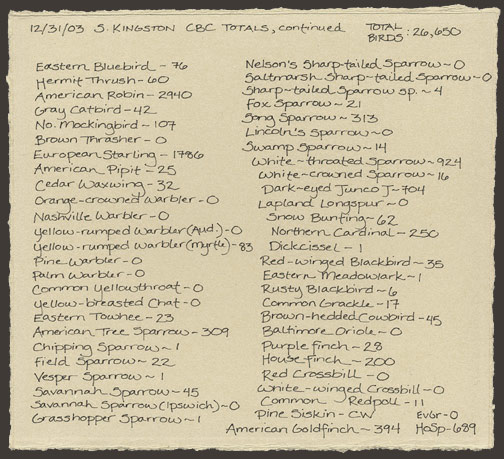 12/31/03 S. KINGSTON CBC TOTALS, continued TOTAL BIRDS: 26,650
Eastern Bluebird - 76
Hermit Thrush - 60
American Robin - 2940
Gray Catbird - 42
No. Mockingbird - 107
Brown Thrasher - 0
European Starling - 1786
American Pipit - 25
Cedar Waxwing - 32
Orange-crowned Warbler - 0
Nashville Warbler - 0
Yellow-rumped Warbler (Aud.) - 0
Yellow-rumped Warbler (Myrtle) - 83
Pine Warbler - 0
Palm Warbler - 0
Common Yellowthroat - 0
Yellow-breasted Chat - 0
Eastern Towhee - 23
American Tree Sparrow - 309
Chipping Sparrow ~ 1
Field Sparrow ~ 22
Vesper Sparrow ~ 1
Savannah Sparrow ~ 45
Savannah Sparrow (Ipswich) ~ 0
Grasshopper Sparrow ~ 1
Nelson's Sharp-tailed Sparrow ~ 0
Saltmarsh Sharp-tailed Sparrow ~ 0
Sharp-tailed Sparrow sp. ~ 4
Fox Sparrow ~ 21
Song Sparrow ~ 313
Lincoln's Sparrow ~ 0
Swamp Sparrow ~ 14
White-throated Sparrow ~ 924
White-crowned Sparrow ~ 16
Dark-eyed Junco J - 704
Lapland Longspur ~ 0
Snow Bunting - 62
Northern Cardinal - 250
Dickcissel - 1
Red-winged Blackbird ~ 35
Eastern Meadowlark - 1
Rusty Blackbird ~ 6
Common Grackle - 17
Brown-hedded Cowbird - 45
Baltimore Oriole - 0
Purple finch - 28
House finch - 200
Red Crossbill - 0
White-winged Crossbill - 0
Common Redpoll - 11
Pine Siskin - CW EvGr-0
American Goldfinch ~ 394 HoSp-689